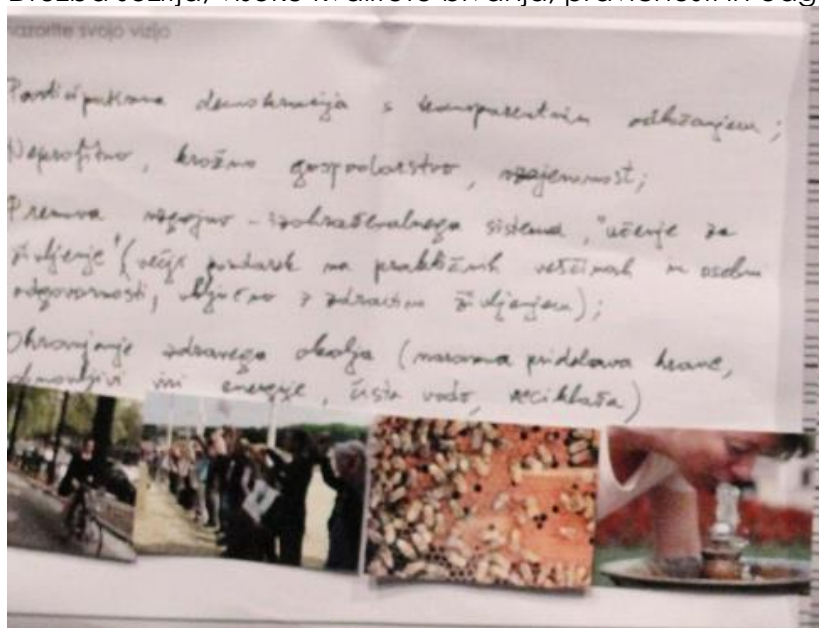 nazorite svojo vizijo
demokracija s transparentnim odločanjem;
Neprofitno, krožno gospodarstvo, vzajemnost;
Prenova vzgojno-izobraževalnega sistema, "učenje za
življenje" (večji poudarek na praktičnih veščinah in osebni
odgovornosti, vključno z zdravim življenjem);
Ohranjanje zdravega okolja (naravna pridelava hrane,
obnovljivi viri energije, čista voda, reciklaža)